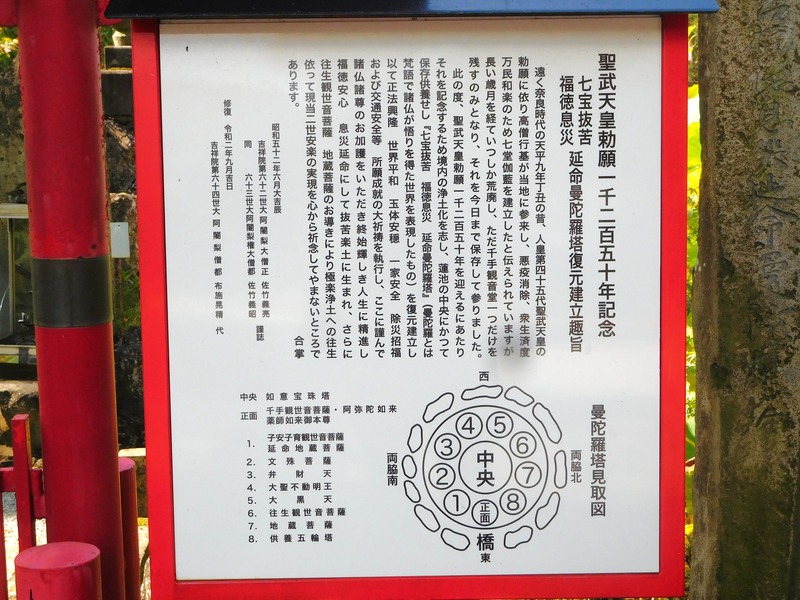 聖武天皇勅願一千二百五十年記念
七宝抜苦
福徳息災　延命曼陀羅塔復元建立趣旨
遠く奈良時代の天平九年丁丑の昔、人皇第四十五代聖武天皇の
勅願に依り高僧行基が当地に参来し、悪疫消除、衆生済度
万民和楽のため七堂伽藍を建立したと伝えられていますが
長い歳月を経ていつしか荒廃し、ただ千手観音堂一つだけを
残すのみとなり、それを今日まで保存して参りました。
此の度、聖武天皇勅願一千二百五十年を迎えるにあたり
それを記念するため境内の浄土化を志し、蓮池の中央にかつて
保存供養せし『七宝抜苦　福徳息災　延命曼陀羅塔』（曼陀羅とは
梵語で諸仏が悟りを得た世界を表現したもの）を復元建立し
以て正法興隆　世界平和　玉体安穏　一家安全　除災招福
および交通安全等　所願成就の大祈祷を執行し、ここに謹んで
諸仏諸尊のお加護をいただき終始輝しき人生に精進し
福徳安心　息災延命にして抜苦楽土に生まれ、さらに
往生観世音菩薩　地蔵菩薩のお導きにより極楽浄土への往生
依って現当二世安楽の実現を心から祈念してやまないところで
あります。
合掌
昭和五十二年六月大吉辰
吉祥院第六十二世大阿闍梨大僧正　佐竹義亮　謹誌
同　六十三世大阿闍梨権大僧都　佐竹義昭
修復　令和二年九月吉日
吉祥院第六十四世大阿闍梨僧都　布施晃精　代
曼陀羅塔見取図
西
両脇北
両脇南
中央
正面
1
2
3
4
5
6
7
8
橋
東
中央　如意宝珠塔
正面　千手観世音菩薩・阿弥陀如来
薬師如来御本尊
1.　子安子育観世音菩薩
延命地蔵菩薩
2.　文殊菩薩
3.　弁財天
4.　大聖不動明王
5.　大黒天
6.　往生観世音菩薩
7.　地蔵菩薩
8.　供養五輪塔